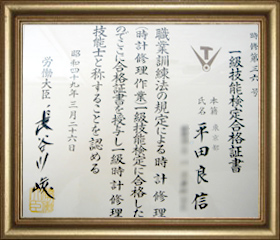 時修第三六号
一級技能検定合格証書
本籍 東京都
氏名 平田良信
職業訓練法の規定による時計修理
(時計修理作業)一級技能検定に合格した
のでここに合格証書を授与し一級時計修理
技能士と称することを認める
昭和四十九年三月二十六日
労働大臣 長谷川峻